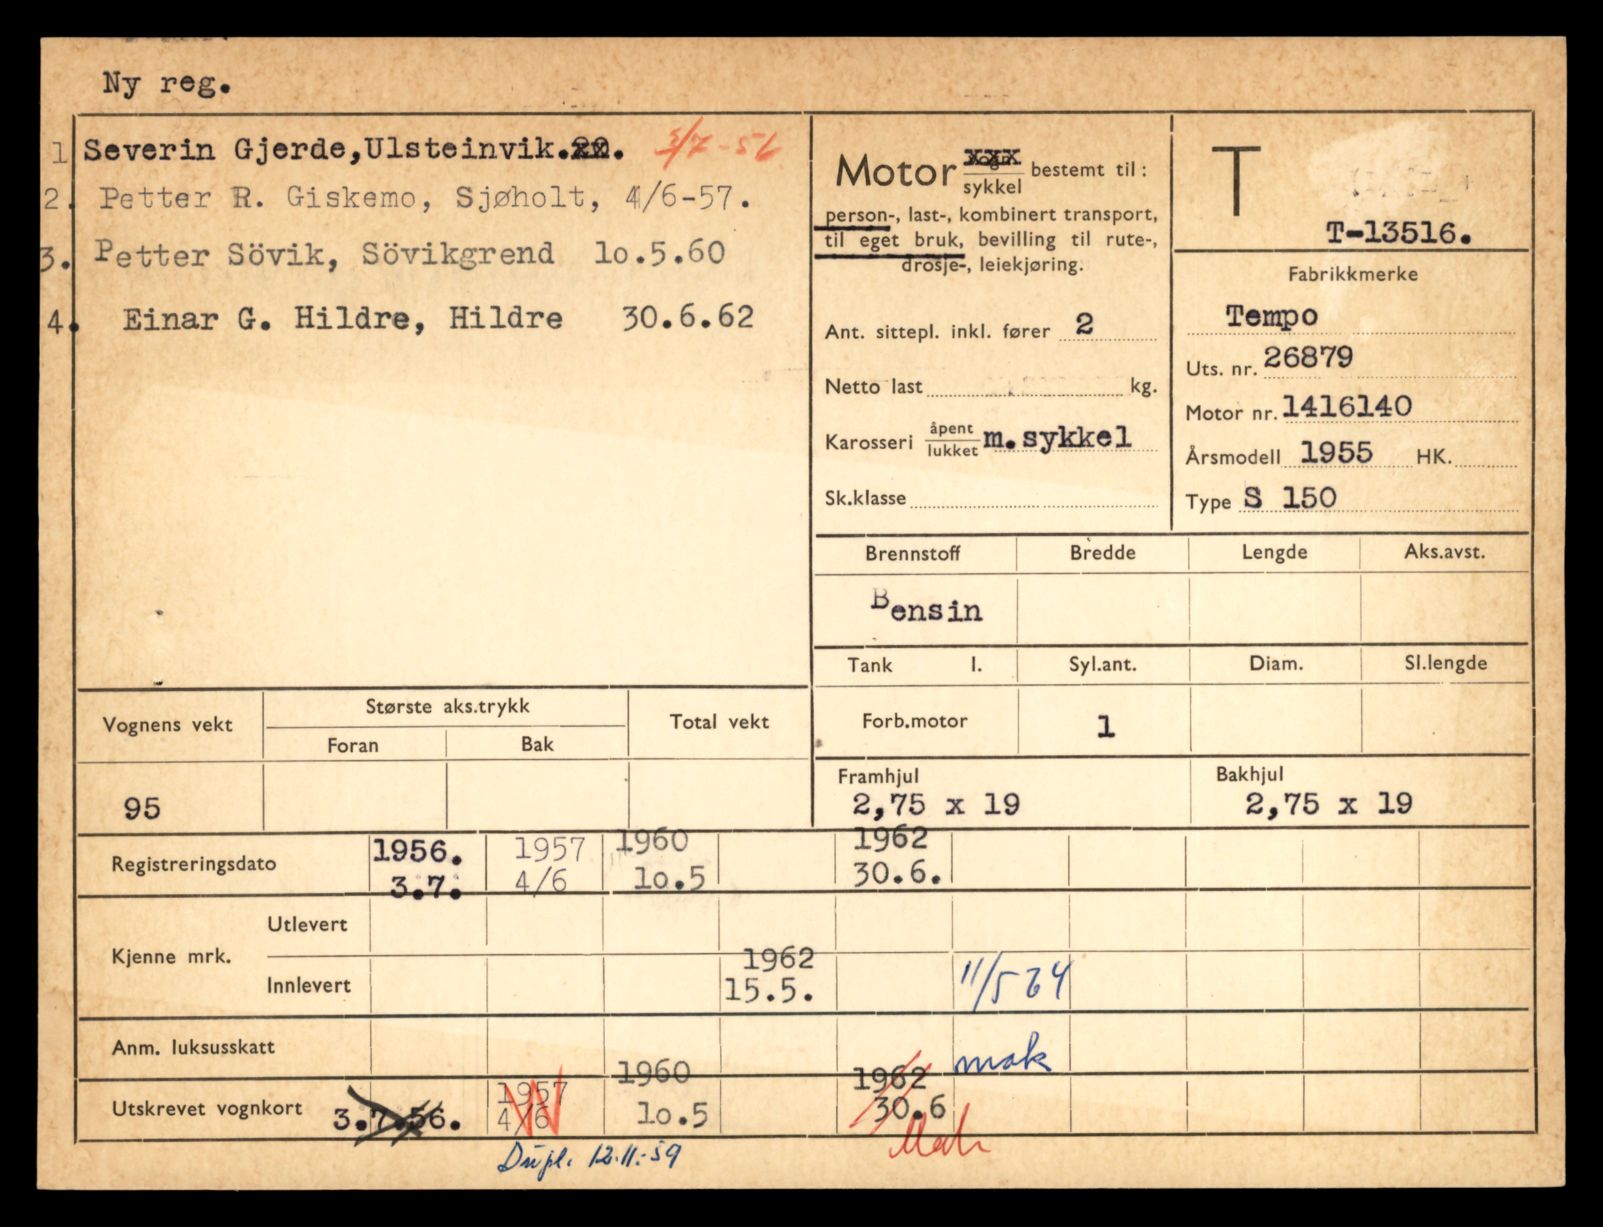 Ny reg.
1 Severin Gjerde, Ulsteinvik. 3/7-56
2. Petter R. Giskemo, Sjøholt, 4/6-57.
3. Petter Sövik, Sövikgrend 1o.5.60
4. Einar G. Hildre, Hildre 30.6.62
Motor vogn sykkel bestemt til:
person-, last-, kombinert transport,
til eget bruk, bevilling til rute-,
drosje-, leiekjøring.
Ant. sittepl. inkl. fører 2
Netto last kg.
Karosseri åpent lukket m.sykkel
Sk.klasse
T
T-13516.
Fabrikkmerke
Tempo
Uts. nr. 26879
Motor nr. 1416140
Årsmodell 1955 HK.
Type S 150
Brennstoff Bredde Lengde Aks.avst.
Bensin
Tank l. Syl.ant. Diam. Sl.lengde
Forb.motor 1
Framhjul Bakhjul
2,75 x 19 2,75 x 19
Vognens vekt Største aks.trykk Total vekt
Foran Bak
95
Registreringsdato 1956. 1957 1960 1962
3.7. 4/6 1o.5 30.6.
Kjenne mrk.
Utlevert
Innlevert 1962 15.5. 11/5 64
Anm. luksusskatt mak
Utskrevet vognkort 3.7.56. 1957 4/6 1960 1o.5 1962 30.6
Dupl. 12.11.-59